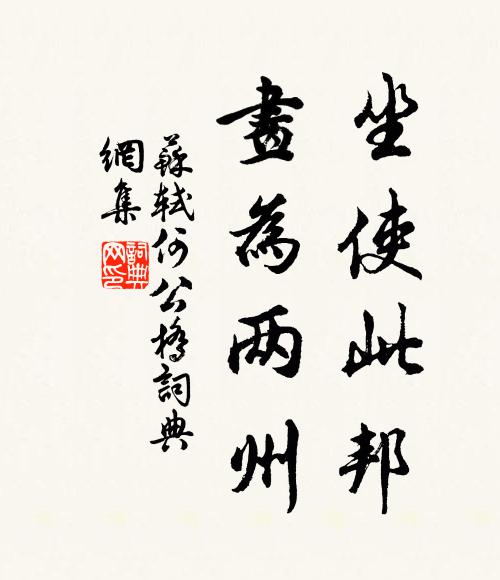 坐使此邦
畫為兩州
蘇軾何公橋詞典
網集
詞典网印